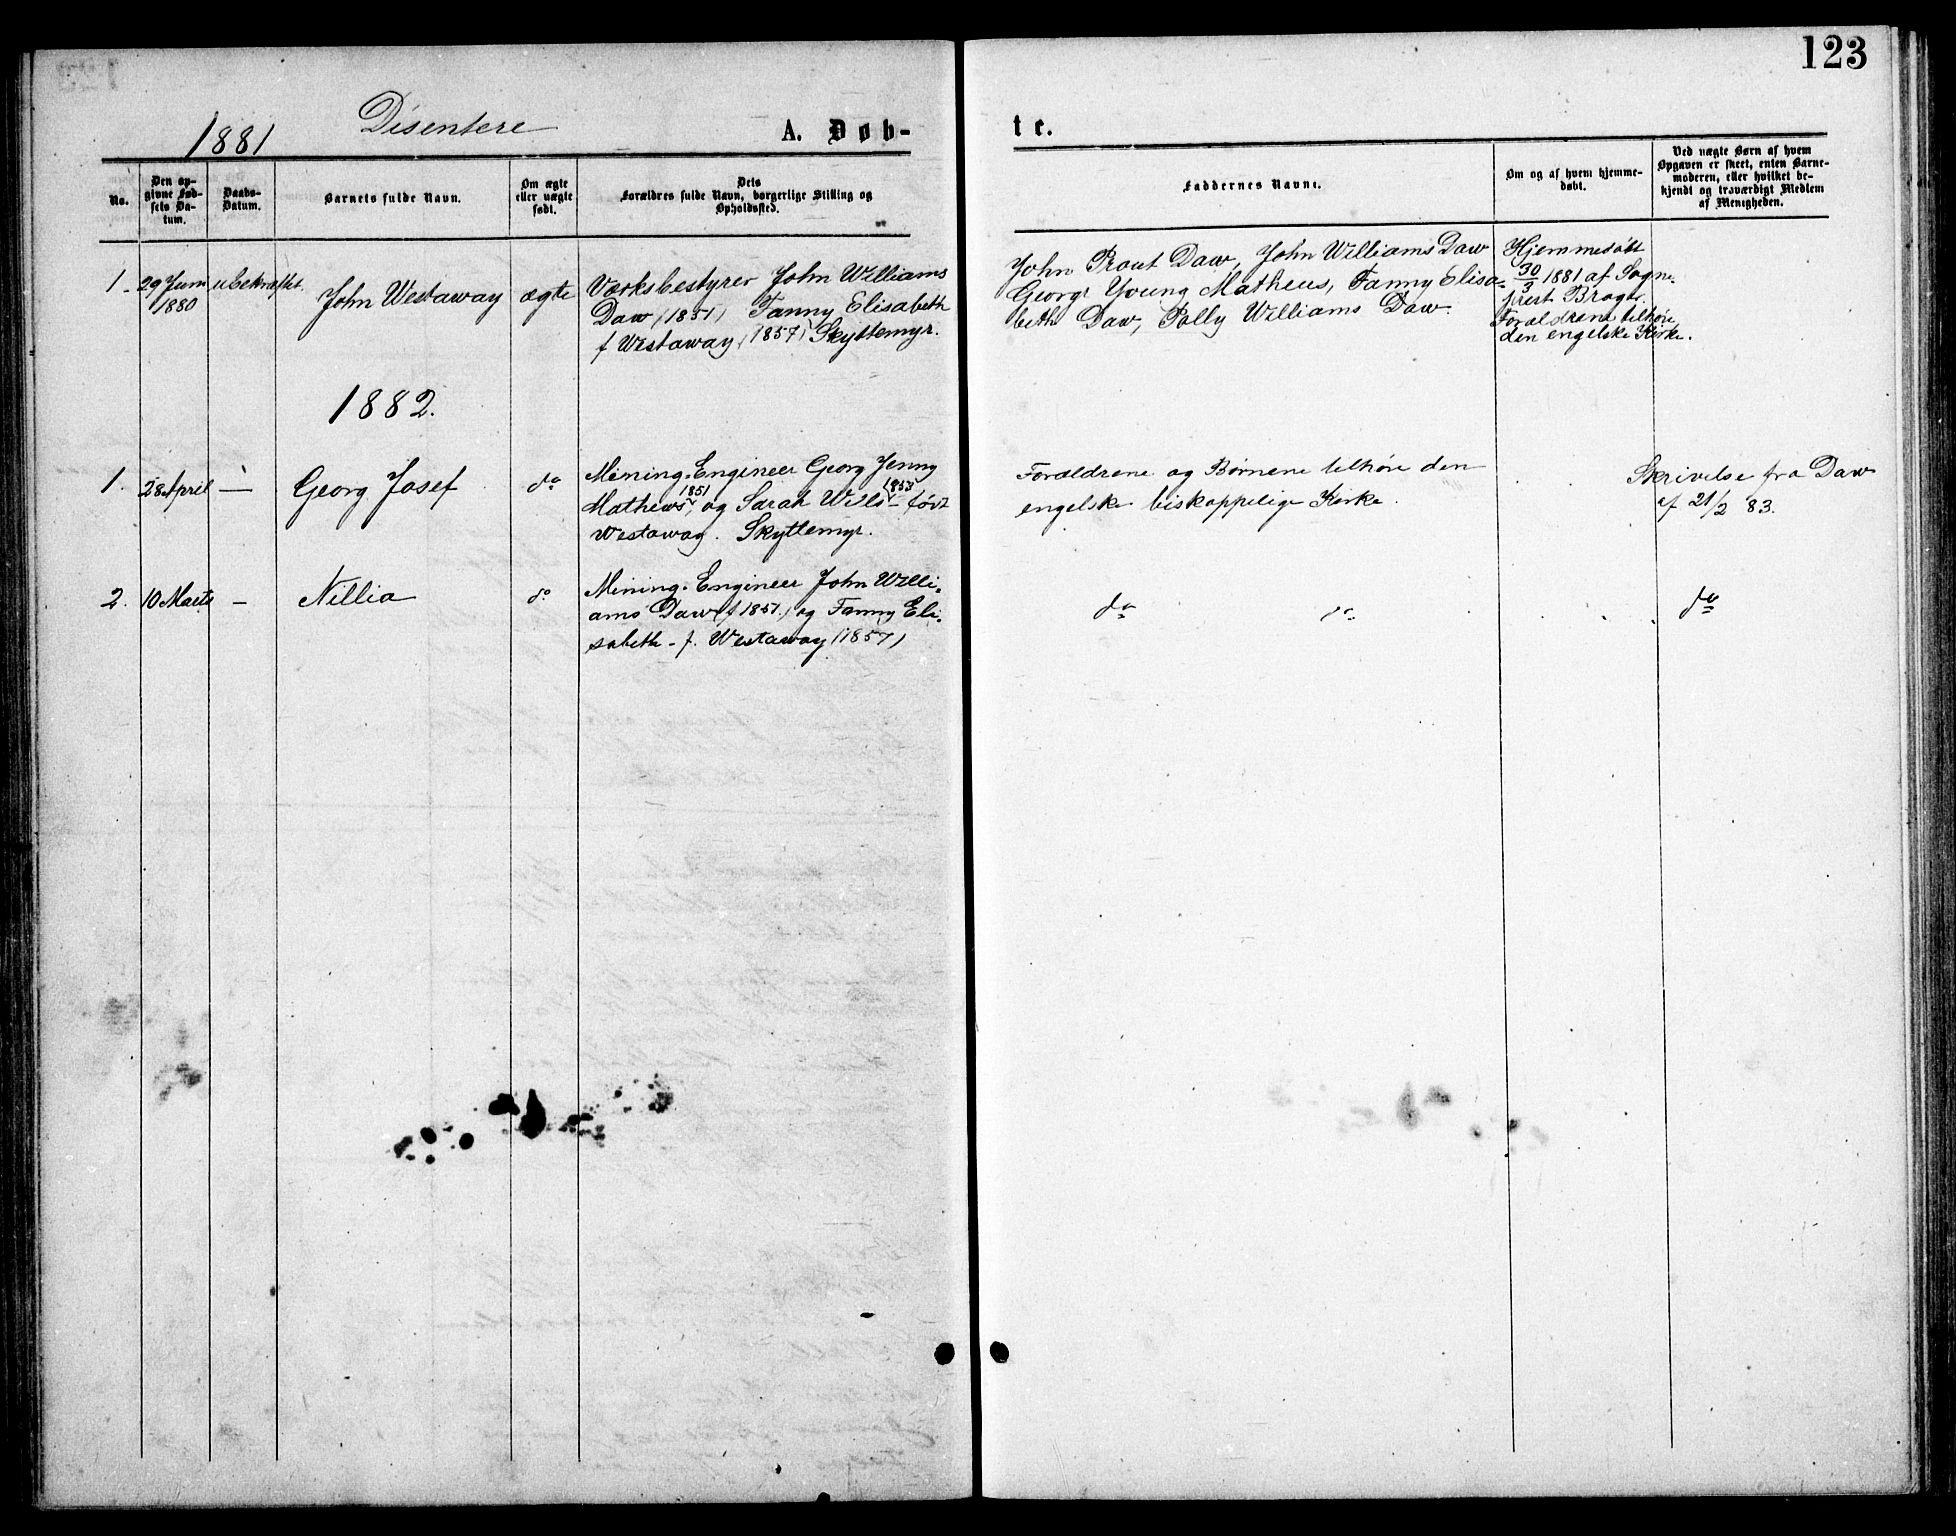 123
1881 Disentere A. Døb-
te.
No.
Den op-
givne Fød-
sels Da-
tum.
Daabs-
Datum.
Barnets fulde Navn.
Om ægte
eller uægte
født.
Dets
Forældres fulde Navn, borgerlige Stilling og
Opholdssted.
Faddernes Navne.
Om og af hvem hjemme-
døbt.
Ved uægte Børn af hvem
Opgaven er skeet, enten Barne-
moderen, eller hvilket be-
kjendt og troværdigt Medlem
af Menigheden.
1. 29 Juni
1880
ubekræftet.
John Westaway
ægte
Værksbestyrer John Williams
Daw (1851) Fanny Elisabeth
f Westaway (1857) Skyttemyr.
John Prout Daw, John Williams Daw
Georg Young Matheus, Fanny Elisa-
beth Daw, Polly Williams Daw.
Hjemmedøbt
30/3 1881 af Sogne-
prest
Forældrene tilhøre
den engelske Kirke.
1882.
1. 28 April — Georg Josef do
Mining-Engineer Georg Jenny
Mathews 1851 og Sarah Wills (1853) født
Westaway. Skyttemyr.
Forældrene og Børnene tilhøre den
engelske biskoppelige Kirke.
Skrivelse fra Daw
af 21/2 83.
2. 10 Marts — Nillia do
Mining-Engineer John Willi-
ams Daw (f 1851) og Fanny Eli-
sabeth - f. Westaway (1857)
do do do